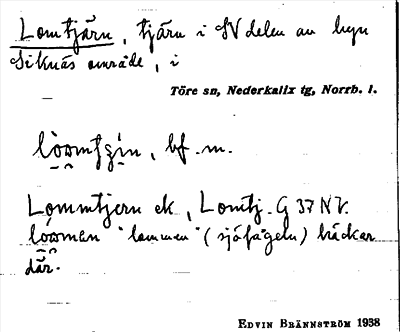 Lomtjärn, tjärn i SV delen av byn
Siknäs område, i
Töre sn, Nederkalix tg, Norrb. l.
bf. m.
Lommtjern ek, Lomtj. G 37 NV.
"lommen" (sjöfågeln) häckar
där.
EDVIN BRÄNNSTRÖM 1938